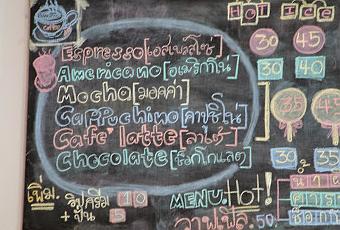 HOT ICE
Espresso [เอสเปรสโซ่] 30 45
Americano [อเมริกาโน] 30 40
Mocha [มอคค่า] 35 45
Cappuchino [คาปูชิโน่]
Cafe' latte [ลาเต้]
Chocolate [ช็อกโกแลต] 30 35
เพิ่ม. วิปครีม 10
+ ปั่น 5
MENU. Hot!
วาฟเฟิล. 50.-